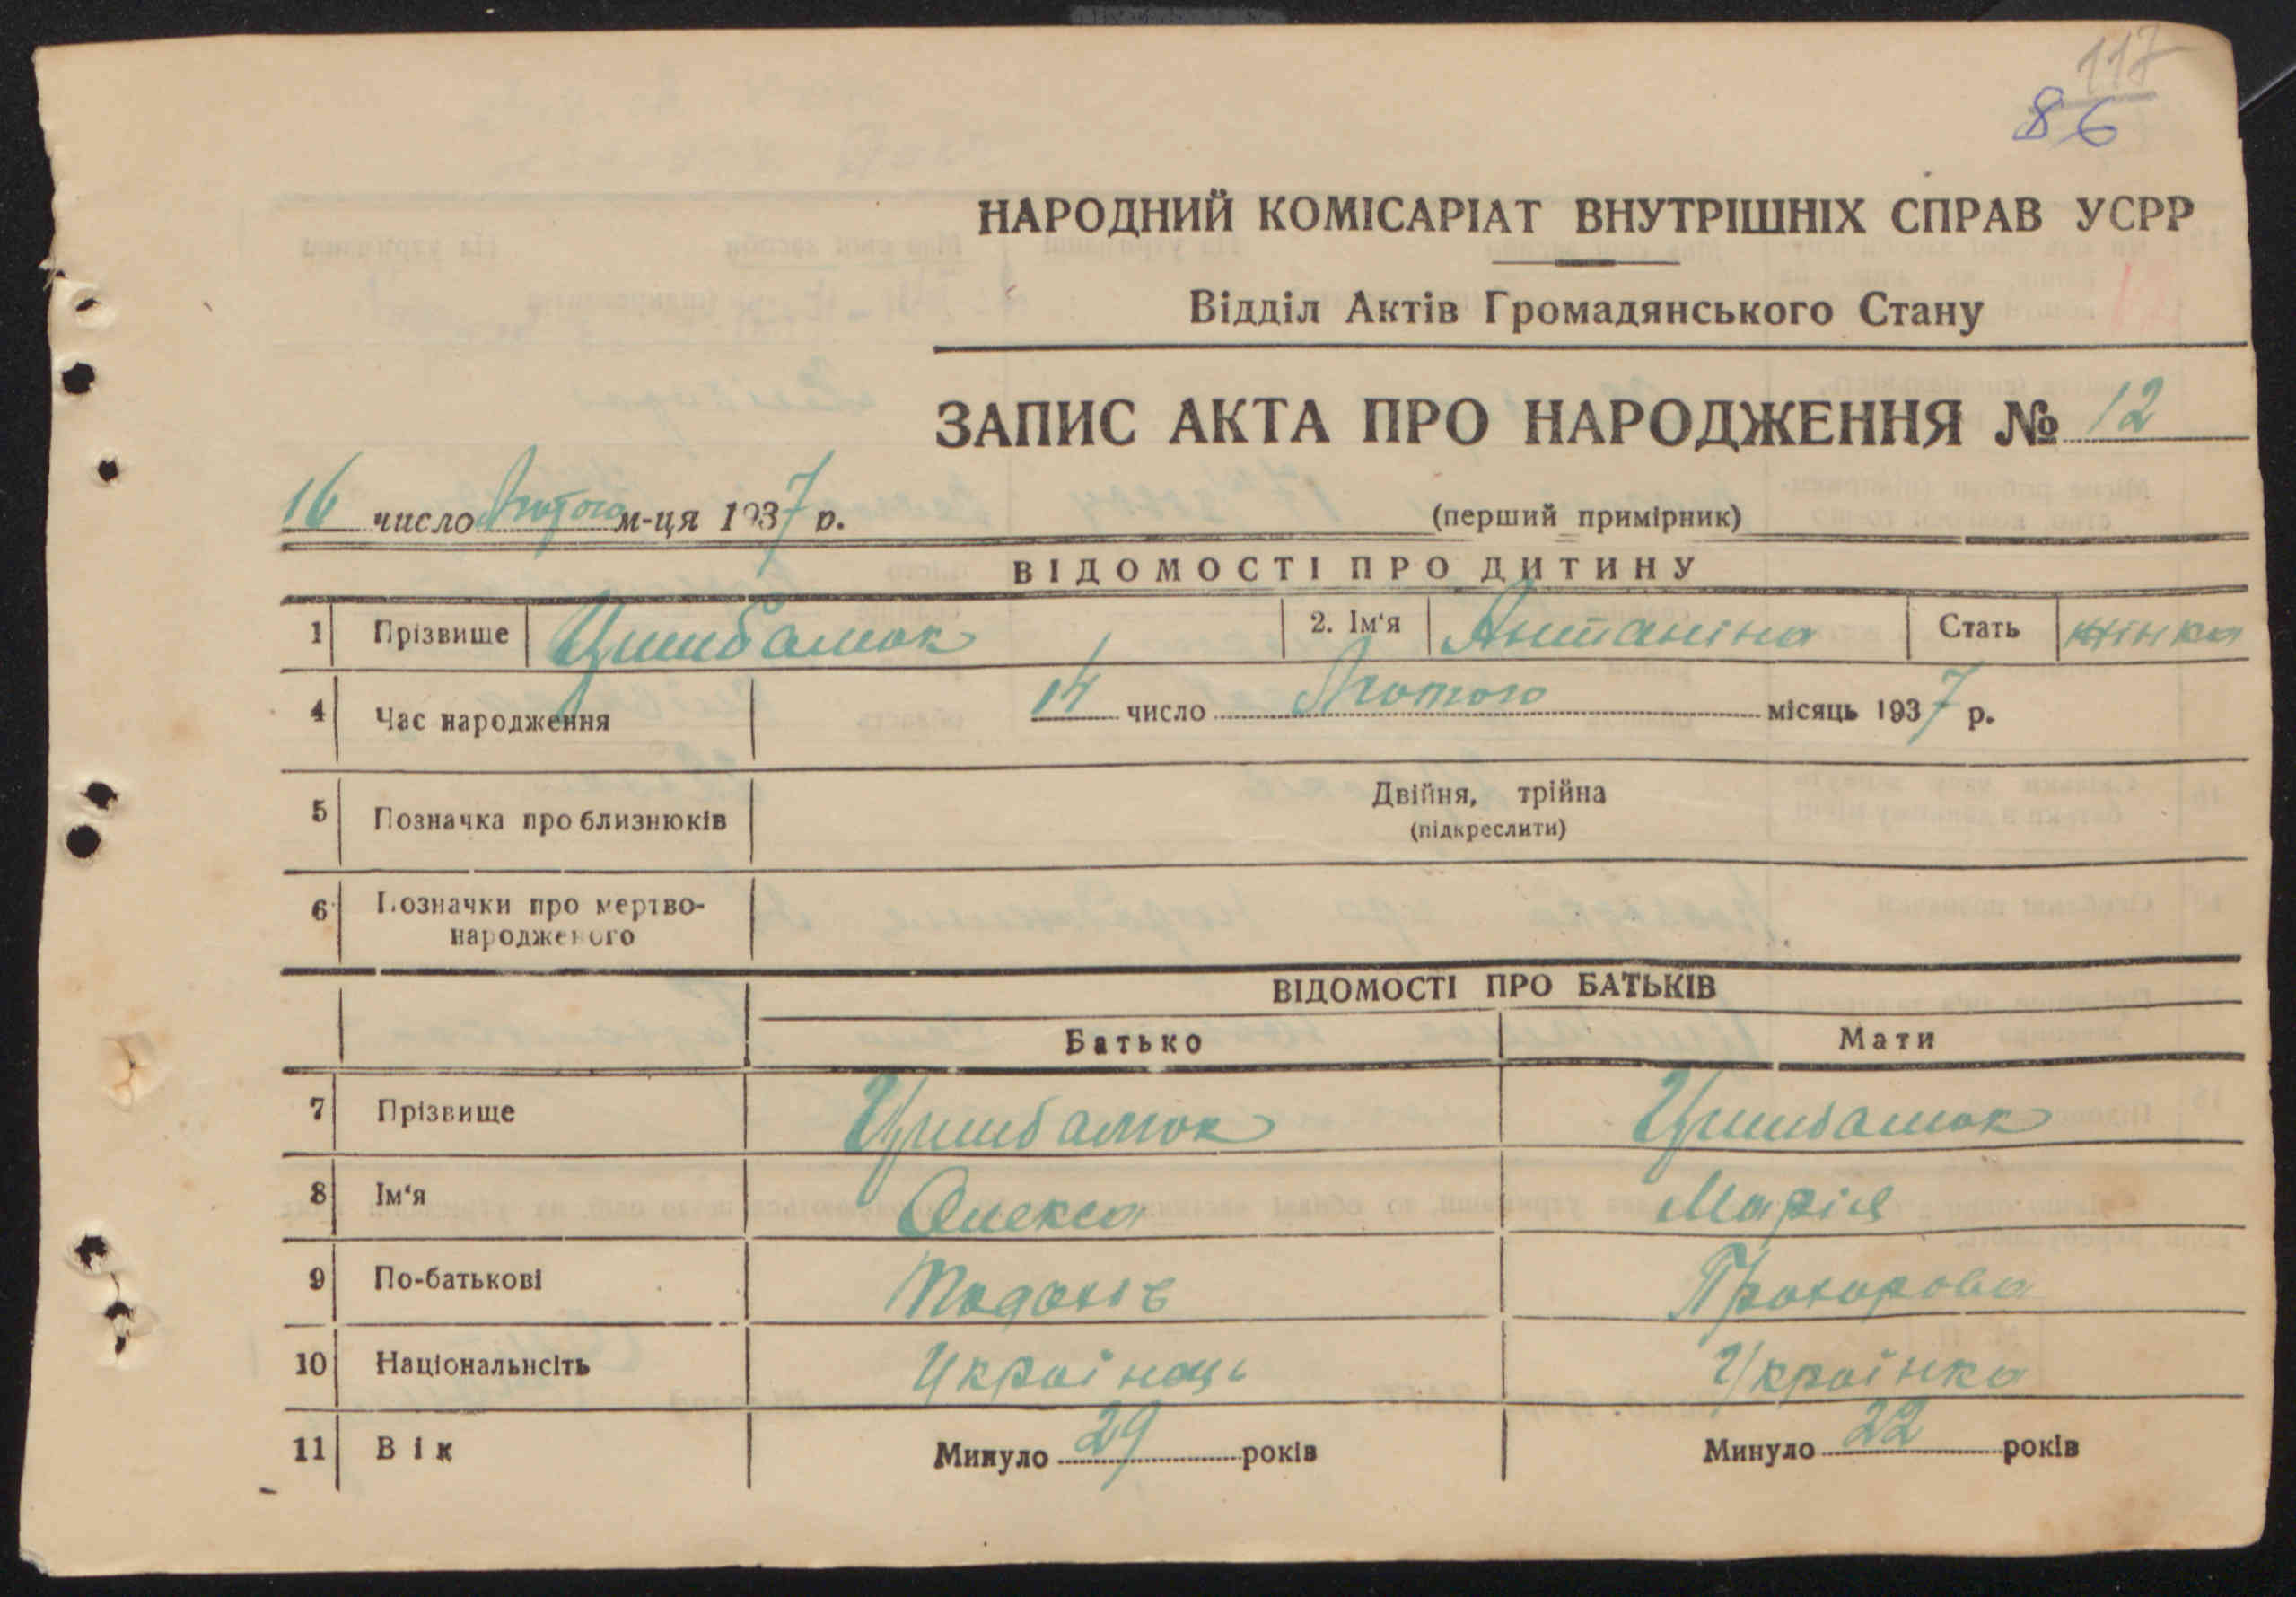 117
86
НАРОДНИЙ КОМІСАРІАТ ВНУТРІШНІХ СПРАВ УСРР
Відділ Актів Громадянського Стану
ЗАПИС АКТА ПРО НАРОДЖЕННЯ № 12
16 число Лютого м-ця 1937 р. (перший примірник)
ВІДОМОСТІ ПРО ДИТИНУ
1 Прізвище Цимбалюк 2. Ім'я Антаніна Стать жінка
4 Час народження 14 число Лютого місяць 1937 р.
5 Позначка про близнюків Двійня, трійна
(підкреслити)
6 Позначки про мертво-
народженого
ВІДОМОСТІ ПРО БАТЬКІВ
Батько Мати
7 Прізвище Цимбалюк Цимбалюк
8 Ім'я Олекса Марія
9 По-батькові Прохорова
10 Національнсіть Українець Українка
11 Вік Минуло 29 років Минуло 22 років